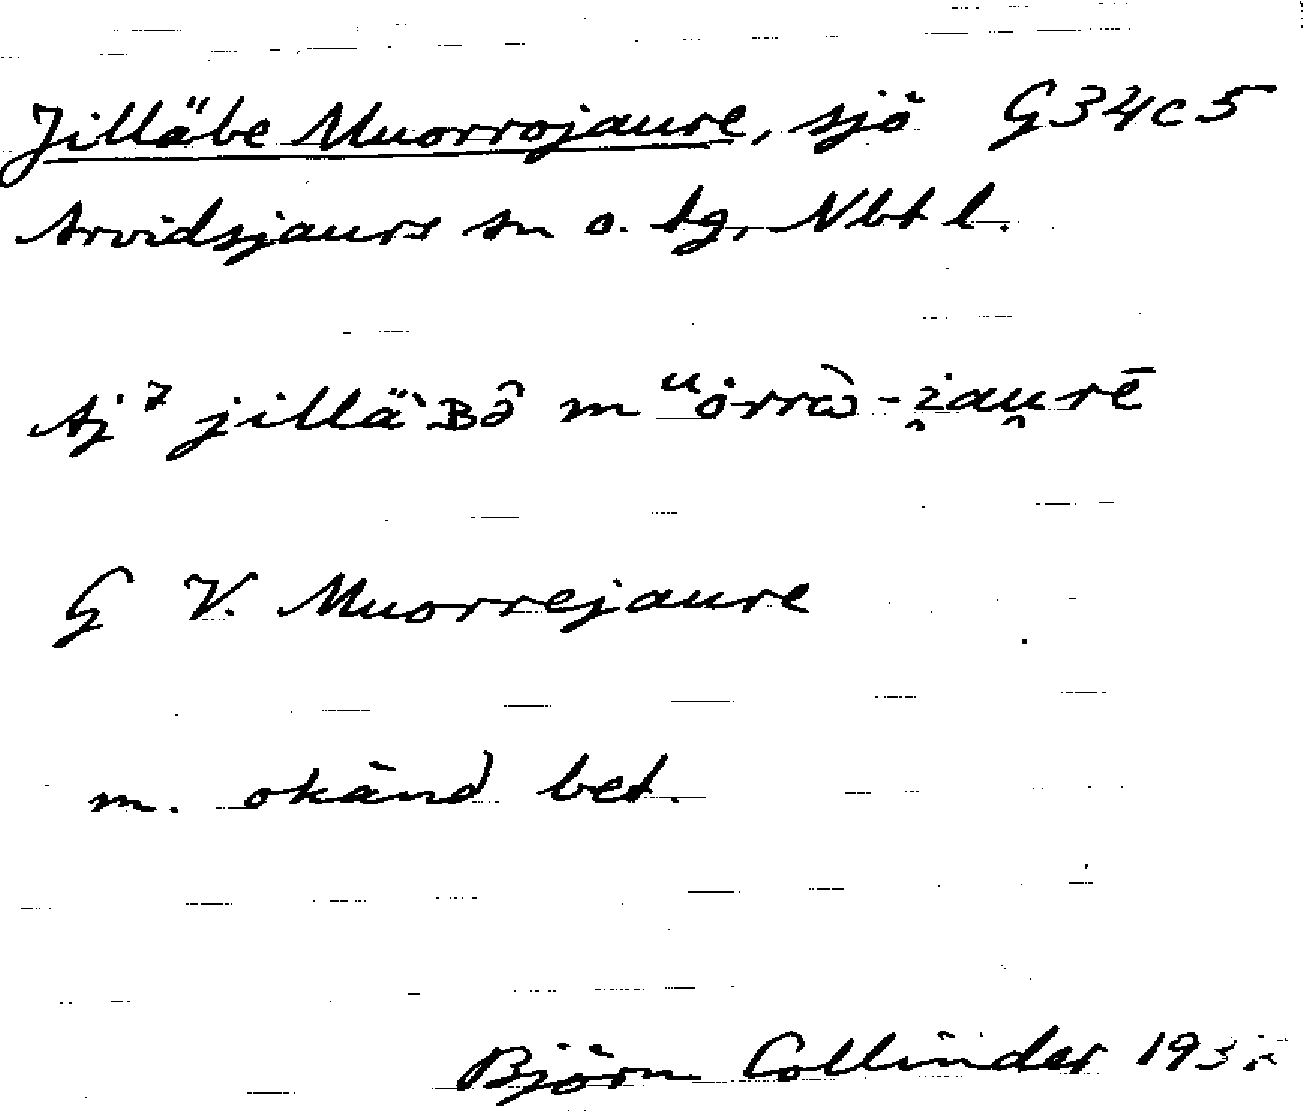 Jilläbe Muorrojaure, sjö G34c5
Arvidsjaurs sn o. tg, Nbt l.
Aj 7 jillä`ʙô mᵘȯrrὼ-i̯au̯rē
G V. Muorrejaure
m. okänd bet.
Björn Collinder